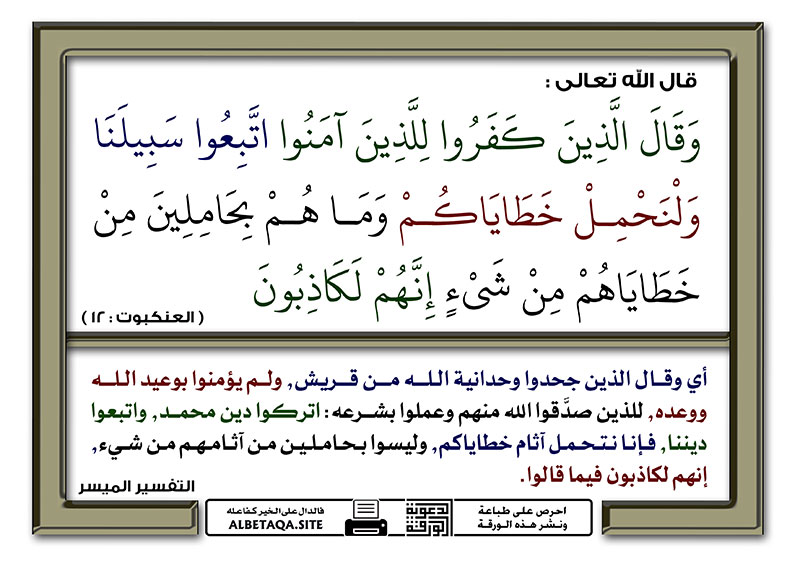 قال الله تعالى :
وَقَالَ الَّذِينَ كَفَرُوا لِلَّذِينَ آمَنُوا اتَّبِعُوا سَبِيلَنَا
وَلْنَحْمِلْ خَطَايَاكُمْ وَمَا هُمْ بِحَامِلِينَ مِنْ
خَطَايَاهُمْ مِنْ شَيْءٍ إِنَّهُمْ لَكَاذِبُونَ
( العنكبوت : ١٢ )
أي وقال الذين جحدوا وحدانية الله من قريش, ولم يؤمنوا بوعيد الله
ووعده, للذين صدَّقوا الله منهم وعملوا بشرعه : اتركوا دين محمد, واتبعوا
ديننا, فإنا نتحمل آثام خطاياكم, وليسوا بحاملين من آثامهم من شيء,
إنهم لكاذبون فيما قالوا.
التفسير الميسر
احرص على طباعة
ونشر هذه الورقة
الدعوية
الورقة
فالدال على الخير كفاعله
ALBETAQA.SITE